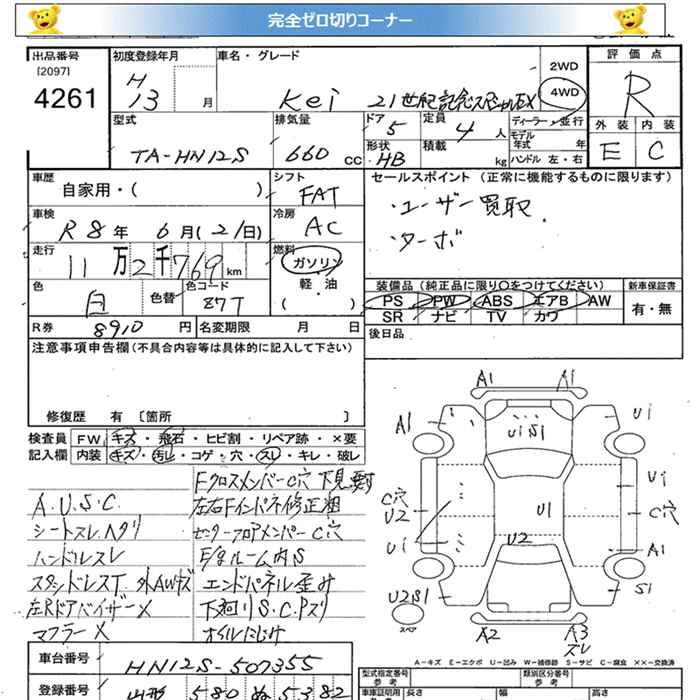 完全ゼロ切りコーナー
出品番号 初度登録年月 車名・グレード 2WD 評価点
[2097] H
4261 13 月 Kei 21世紀記念スペシャルEX 4WD R
型式 排気量 ドア 定員 ディーラー・並行 外装 内装
TA-HN12S 660 CC 5 4 人 モデル年式 年 E C
形状 積載 HB kg ハンドル 左・右
車歴 シフト セールスポイント (正常に機能するものに限ります)
自家用・( ) FAT ・ユーザー買取
車検 冷房
R8年 6月(21日) AC ・ターボ
走行 燃料
11万2千769km ガソリン
軽・油
色 色替 色コード ( ) 装備品 (純正品に限り○をつけてください) 新車保証書
白 27T PS PW ABS エアB AW 有・無
R券 8910 円 名変期限 月 日 SR ナビ TV カワ
注意事項申告欄(不具合内容等は具体的に記入して下さい) 後日品
修復歴 有 [箇所 ]
検査員 FW キズ・飛石・ヒビ割・リペア跡・×要
記入欄 内装 キズ・汚レ・コゲ・穴・スレ・キレ・破レ
Fクロスメンバー C穴 下見要す
A.U.S.C. 左右Fインパネ修正粗
シートスレ、ヘタリ センターフロアメンバー C穴
ハンドルスレ E/gルーム内S
スタッドレスT 外AWキズ エンドパネル歪み
左RドアバイザーX 下廻りS.C.Pズリ
マフラーX オイルにじみ
A1 A1
A1 U1 S1 U1
U1
C穴 U1 C穴
U2
U1 U2 A1
U2S1 S1
スペア A2 A3
ズレ
A-キズ E-エクボ U-凹み W-補修跡 S-サビ C-腐食 ××-交換済
車台番号 HN12S-507355 型式指定番号 類別区分番号
参考 参考
登録番号 山形 580 ぬ 5382 車庫証明用 長さ 幅 高さ